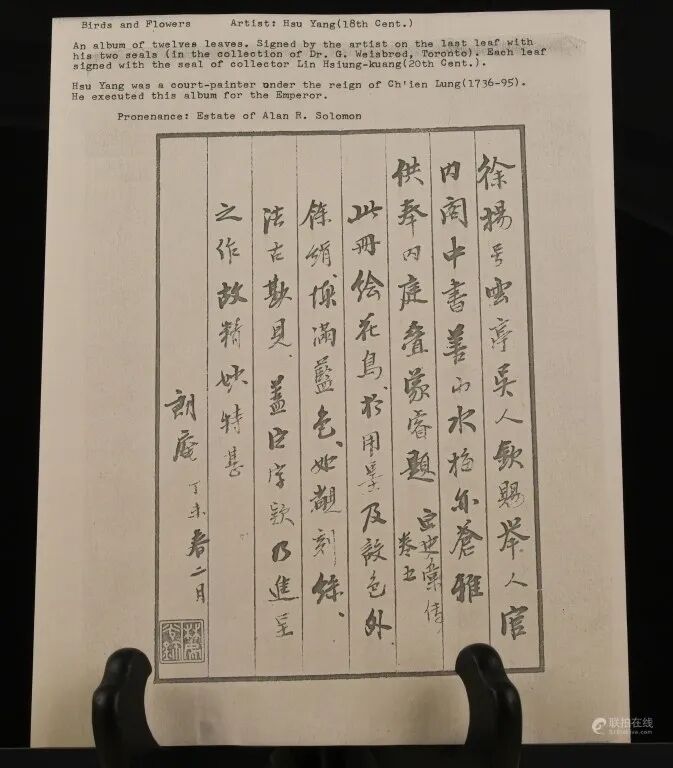 Birds and Flowers Artist: Hsu Yang(18th Cent.)
An album of twelves leaves. Signed by the artist on the last leaf with
his two seals (in the collection of Dr. G. Weisbrod, Toronto). Each leaf
signed with the seal of collector Lin Hsiung-kuang(20th Cent.).
Hsu Yang was a court-painter under the reign of Ch'ien Lung(1736-95).
He executed this album for the Emperor.
Pronenance: Estate of Alan R. Solomon
徐揚号雲亭吳人欽賜舉人官
内閣中書善山水梅亦蒼雅
供奉内庭叠蒙睿題 画史彙傳
此冊绘花鳥、於用墨及設色外、
餘絹填滿藍色、如觀刻絲、
法古尠見、盖臣字欵乃進呈
之作故精妙特甚
朗庵 丁未春二月
联拍在线